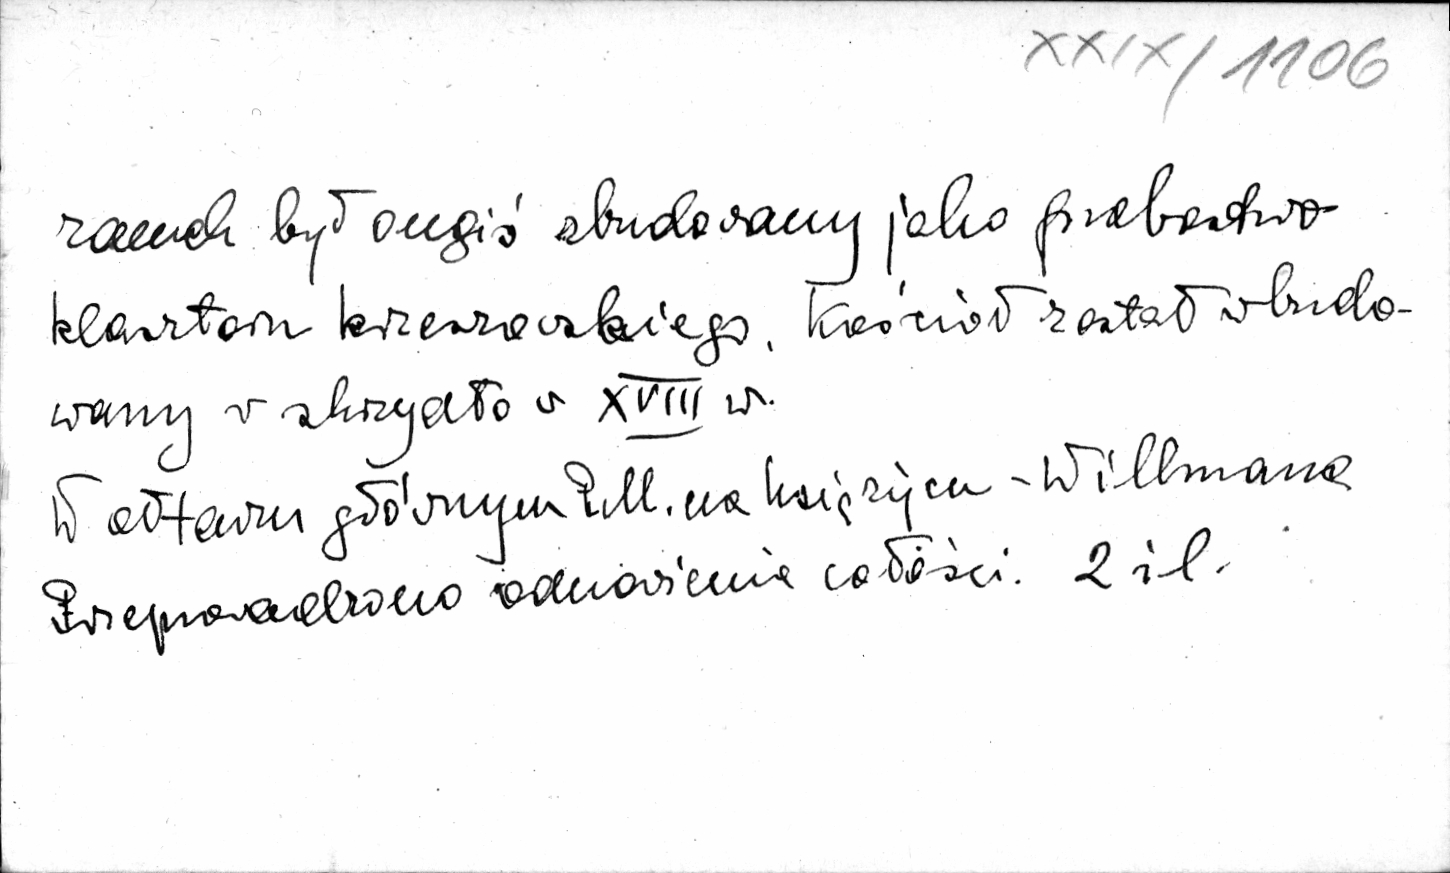 XXIX/1106
zamek był ongiś zbudowany jako probostwo
klasztoru krzeszowskiego. Kościół został wbudo-
wany w skrzydło w XVIII w.
W ołtarzu głównym P.M. na księżycu - Willmana
Przeprowadzono odnowienie całości. 2 il.